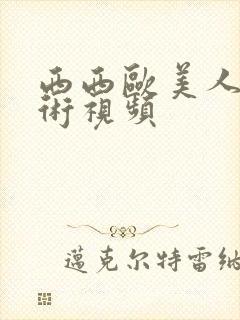 西西歐美人
術視頻
邁克尔特雷纳